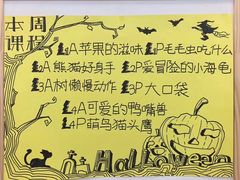 本周课程
L1A苹果的滋味 L1P毛毛虫吃什么
L2A熊猫好身手 L2P爱冒险的小海龟
L3A树懒慢动作 L3P大口袋
L4A可爱的鸭嘴兽
L4P萌鸟猫头鹰
Halloween